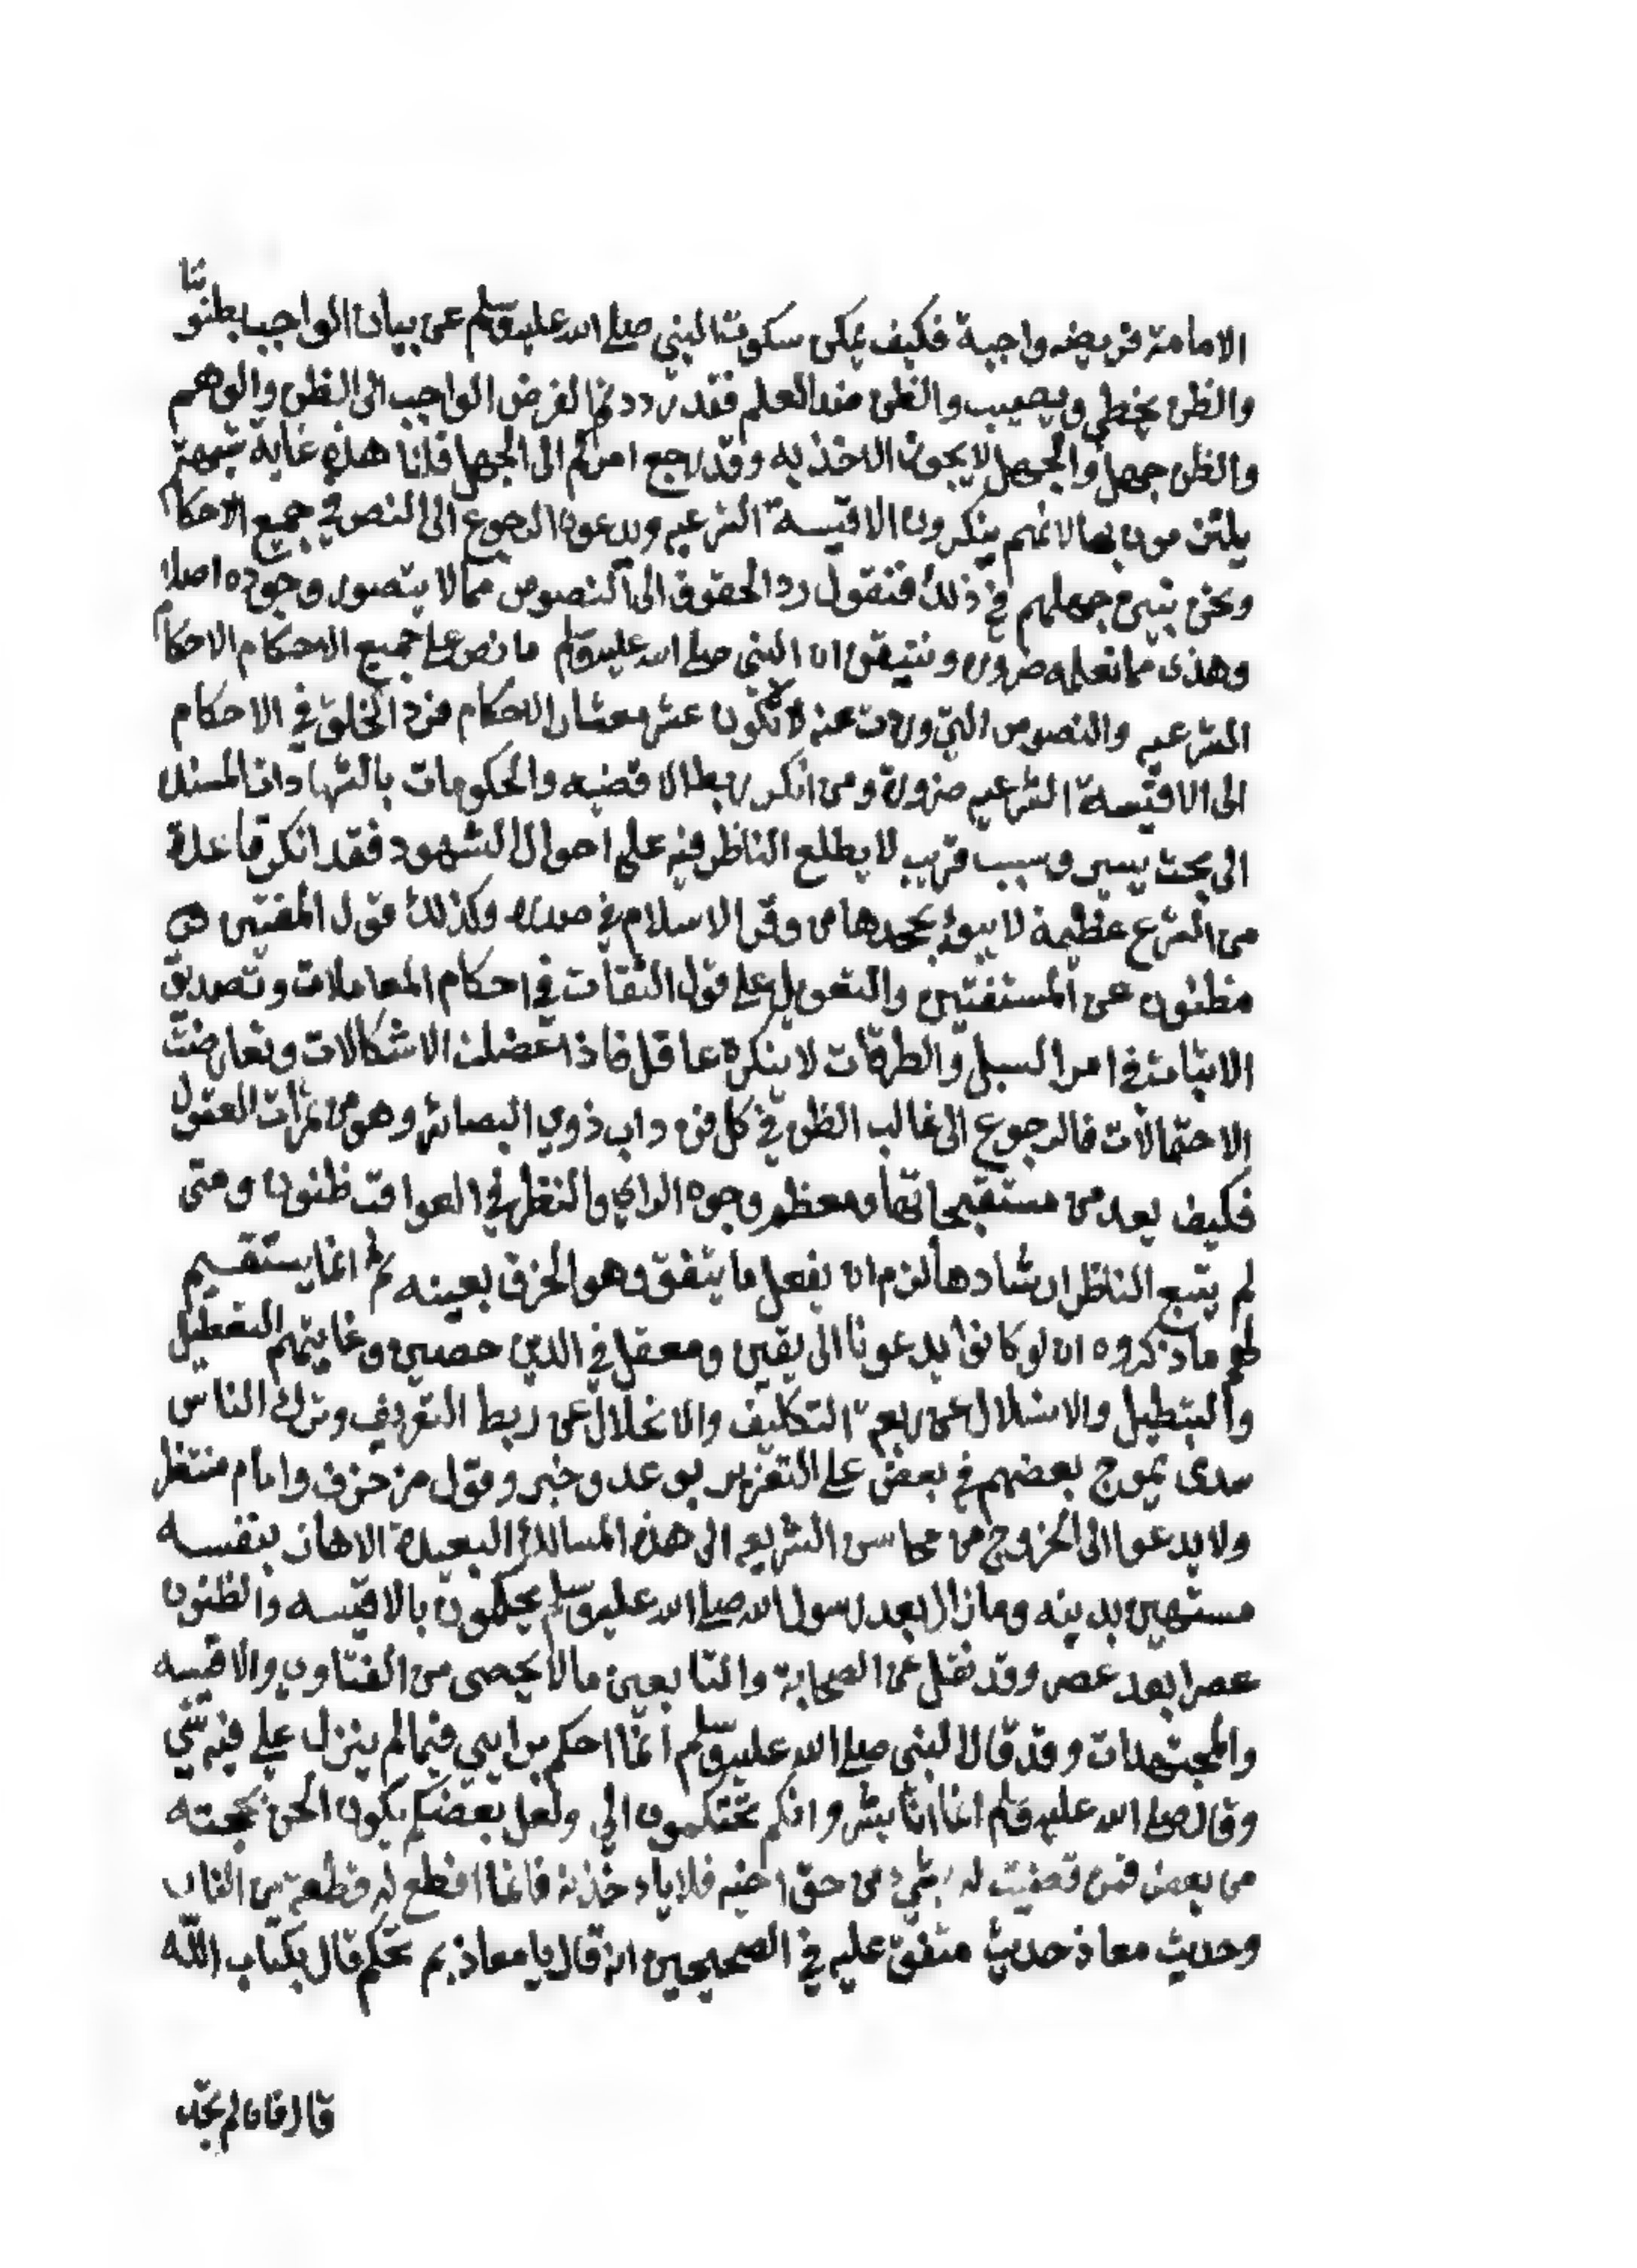 الامامة فريضه واجبة فكيف يمكن سكوت النبي صلى الله عليه وسلم عن بيان الواجب بظنوننا
والظن يخطي ويصيب والظن ضد العلم فقد رددتم الفرض الواجب الى الظن والوهم
والظن جهل والجهل لا يجوز الاخذ به وقد رجع امركم الى الجهل قلنا هذه غاية شبهتهم
يلتزمون بها لانهم ينكرون الاقيسة الشرعيه ويدعون الرجوع الى النص في جميع الاحكام
ونحن نبين جهلهم في ذلك فنقول رد الحقوق الى النصوص مما لا يتصور وجوده اصلا
وهذى مما نعلمه ضرورة ونتيقن ان النبي صلى الله عليه وسلم ما نص على جميع الاحكام الاحكام
الشرعيه والنصوص التي وردت عنه لا تكون عشر معشار الاحكام فرد الخلق في الاحكام
الى الاقيسة الشرعيه ضرورة ومن انكر ربط الاقضيه والحكومات بالشهادات المسندة
الى بحث يسير وسبب قريب لا يطلع الناظر فيه على احوال الشهود فقد انكر قاعدة
من الشرع عظيمة لا يبوء بجحدها من وقر الاسلام في صدره وكذلك قول المفتين هي
مظنون عن المستفتين والتعويل على قول الثقات في احكام المعاملات وتصديق
الاثبات في امر السبل والطرقات لا ينكره عاقل فاذا اعضلت الاشكالات وتعارضت
الاحتمالات فالرجوع الى غالب الظن في كل فن داب ذوي البصائر وهو من ثمرات العقول
فكيف يعد من مستقبحاتها ومعظم وجوه الراي والنظر في العواقب ظنون ومتى
لم يتبع الناظر ارشادها لزم ان يفعل ما يتفق وهو الخرق بعينه ثم انما يستقيم
لهم ما ذكروه ان لو كانوا يدعونا الى يقين ومعقل في الدين حصين وغايتهم التعطيل
والتبطيل والانسلال عن ربقة التكليف والانحلال عن ربط التعريف وترك الناس
سدى يموج بعضهم في بعض على التغرير بوعد وخبر وقول مزخرف وامام منتظر
ولا يدعوا الى الخروج من محاسن الشريعه الى هذه المسالك البعيدة الا هازئ بنفسه
مستهين بدينه وما زال بعد رسول الله صلى الله عليه وسلم يحكمون بالاقيسه والظنون
عصرا بعد عصر وقد نقل عن الصحابة والتابعين ما لا يحصى من الفتاوي والاقيسه
والمجتهدات وقد قال النبي صلى الله عليه وسلم انما احكم برايي فيما لم ينزل علي فيه شي
وقال صلى الله عليه وسلم انما انا بشر وانكم تحتكمون الي ولعل بعضكم يكون الحن بحجته
من بعض فمن قضيت له بشيء من حق اخيه فلا ياخذنه فانما اقطع له قطعة من النار
وحديث معاذ حديث متفق عليه في الصحيحين انه قال يا معاذ بم تحكم قال بكتاب الله
قال فان لم تجد